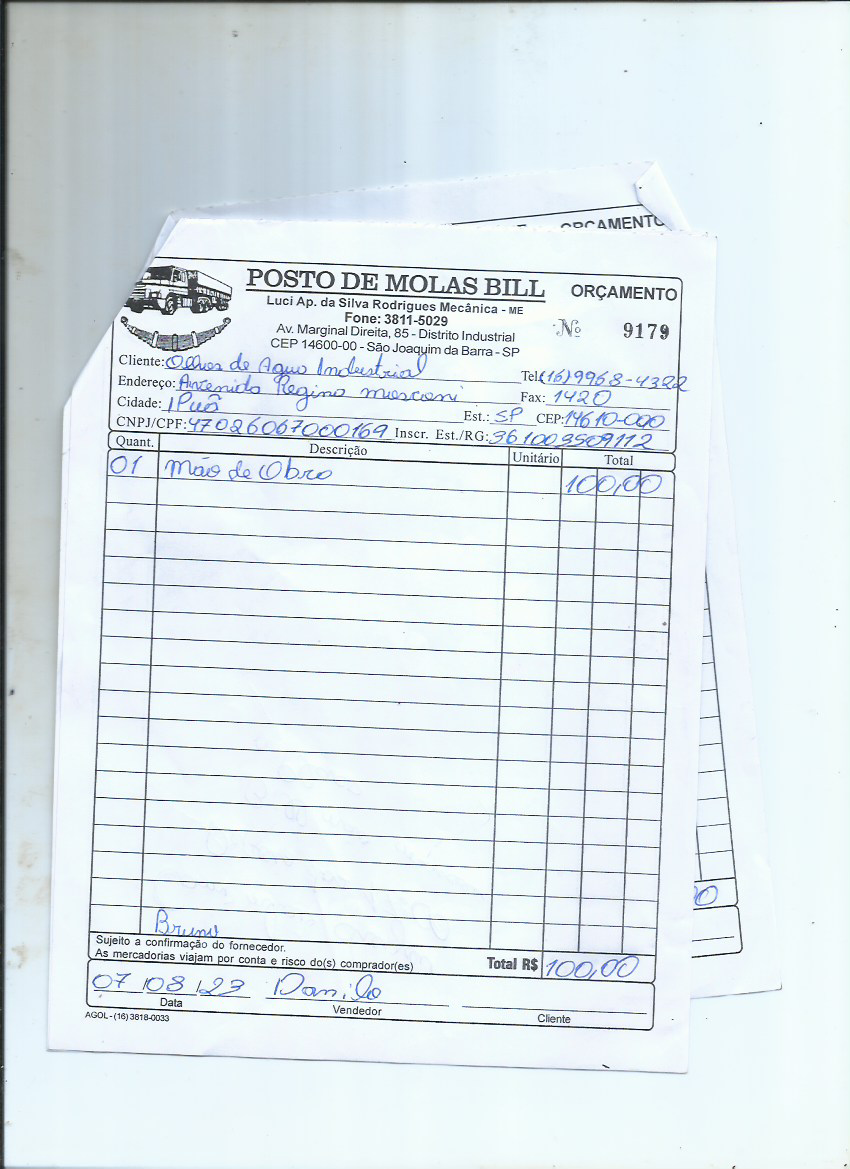 ORÇAMENTO
POSTO DE MOLAS BILL ORÇAMENTO
Luci Ap. da Silva Rodrigues Mecânica - ME
Fone: 3811-5029
Nº 9179
Av. Marginal Direita, 85 - Distrito Industrial
CEP 14600-00 - São Joaquim da Barra - SP
Cliente: Olhos de Agua Industrial Tel.(16)9968-4322
Endereço: Avenida Regina mosconi Fax: 1420
Cidade: IPuã Est.: SP CEP: 14610-000
CNPJ/CPF: 47026067000169 Inscr. Est./RG: 361003509112
Quant. Descrição Unitário Total
01 mão de Obra 100,00
Bruno
Sujeito a confirmação do fornecedor.
As mercadorias viajam por conta e risco do(s) comprador(es) Total R$ 100,00
07/08/23 Danilo
Data Vendedor Cliente
AGOL - (16) 3818-0033